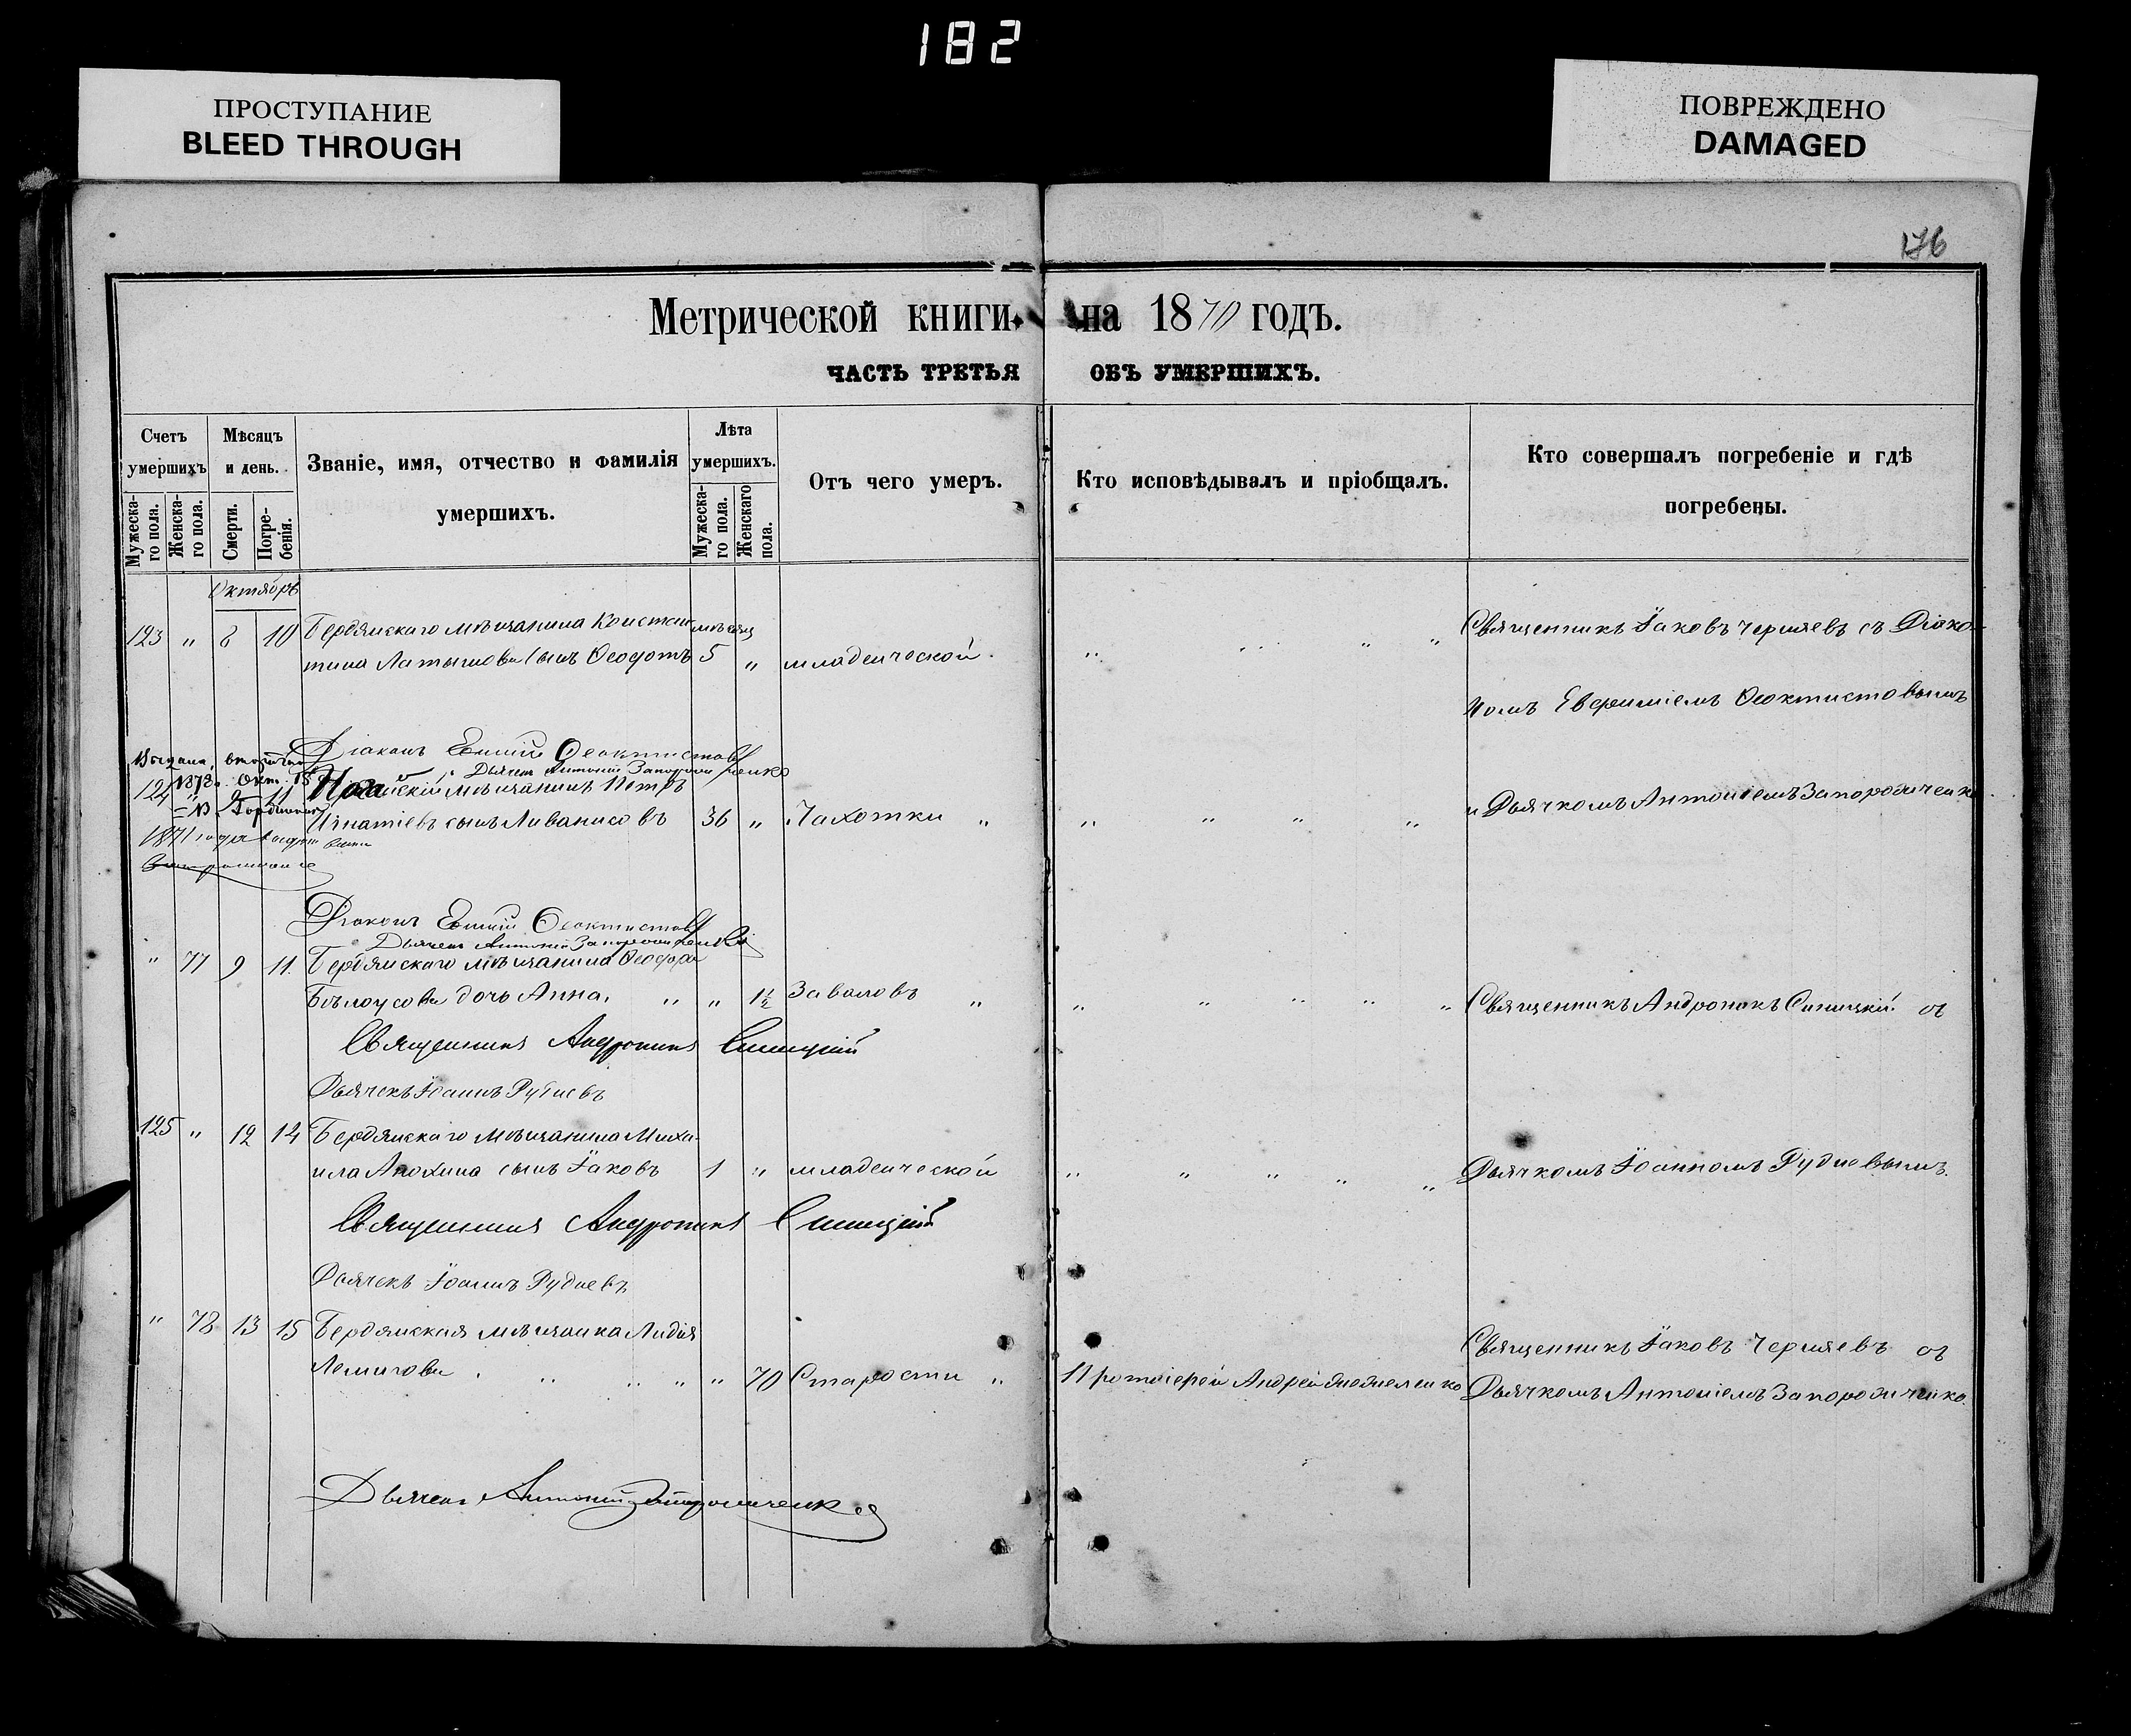 182
ПРОСТУПАНИЕ
BLEED THROUGH
ПОВРЕЖДЕНО
DAMAGED
176
Метрической книги на 1870 годъ.
ЧАСТЬ ТРЕТЬЯ ОБЪ УМЕРШИХЪ.
Счетъ умершихъ
Мужеска-го пола.
Женска-го пола.
Мѣсяцъ и день.
Смерти.
Погре-бенія.
Званіе, имя, отчество и фамилія умершихъ.
Лѣта умершихъ.
Мужеска-го пола.
Женскаго пола.
Отъ чего умеръ.
Кто исповѣдывалъ и пріобщалъ.
Кто совершалъ погребеніе и гдѣ погребены.
Октябрь
123 " 8 10 Бердянскаго мѣщанина Констан- мѣсяц Священникъ Іаковъ Черняевъ съ Діако-
тина Латышова сынъ Ѳеодотъ 5 " младенческой " " " "
номъ Евфиміемъ Ѳеоктистовымъ
Діаконъ Ѳеоктистовъ
Дьячекъ Антоній Запорожченко
1878 Окт. 18
124 " 9 11 Ногайскій мѣщанинъ Петръ и Дьячкомъ Антоніемъ Запорожченко
Игнатіевъ сынъ Ливанисовъ 36 " Чахотки " " " " "
1871 года
Діаконъ Ѳеоктистовъ
Дьячекъ Антоній Запорожченко
" 77 9 11 Бердянскаго мѣщанина Ѳеодора
Бѣлоусова дочь Анна. " " 1½ Заваловъ " " " " " " Священникъ Андроникъ Синицкій съ
Священникъ Андроникъ Синицкій
Дьячекъ Іоаннъ Рудневъ
125 " 12 14 Бердянскаго мѣщанина Миха-
ила Анохина сынъ Іаковъ 1 " младенческой " " " " " Дьячкомъ Іоанномъ Рудневымъ.
Священникъ Андроникъ Синицкій
Дьячекъ Іоаннъ Рудневъ
" 78 13 15 Бердянская мѣщанка Лидія Священникъ Іаковъ Черняевъ съ
" " " " " 70 Старости " Протоіерей Андрей Дьячкомъ Антоніемъ Запорожченко.
Дьячекъ Антоній Запорожченко